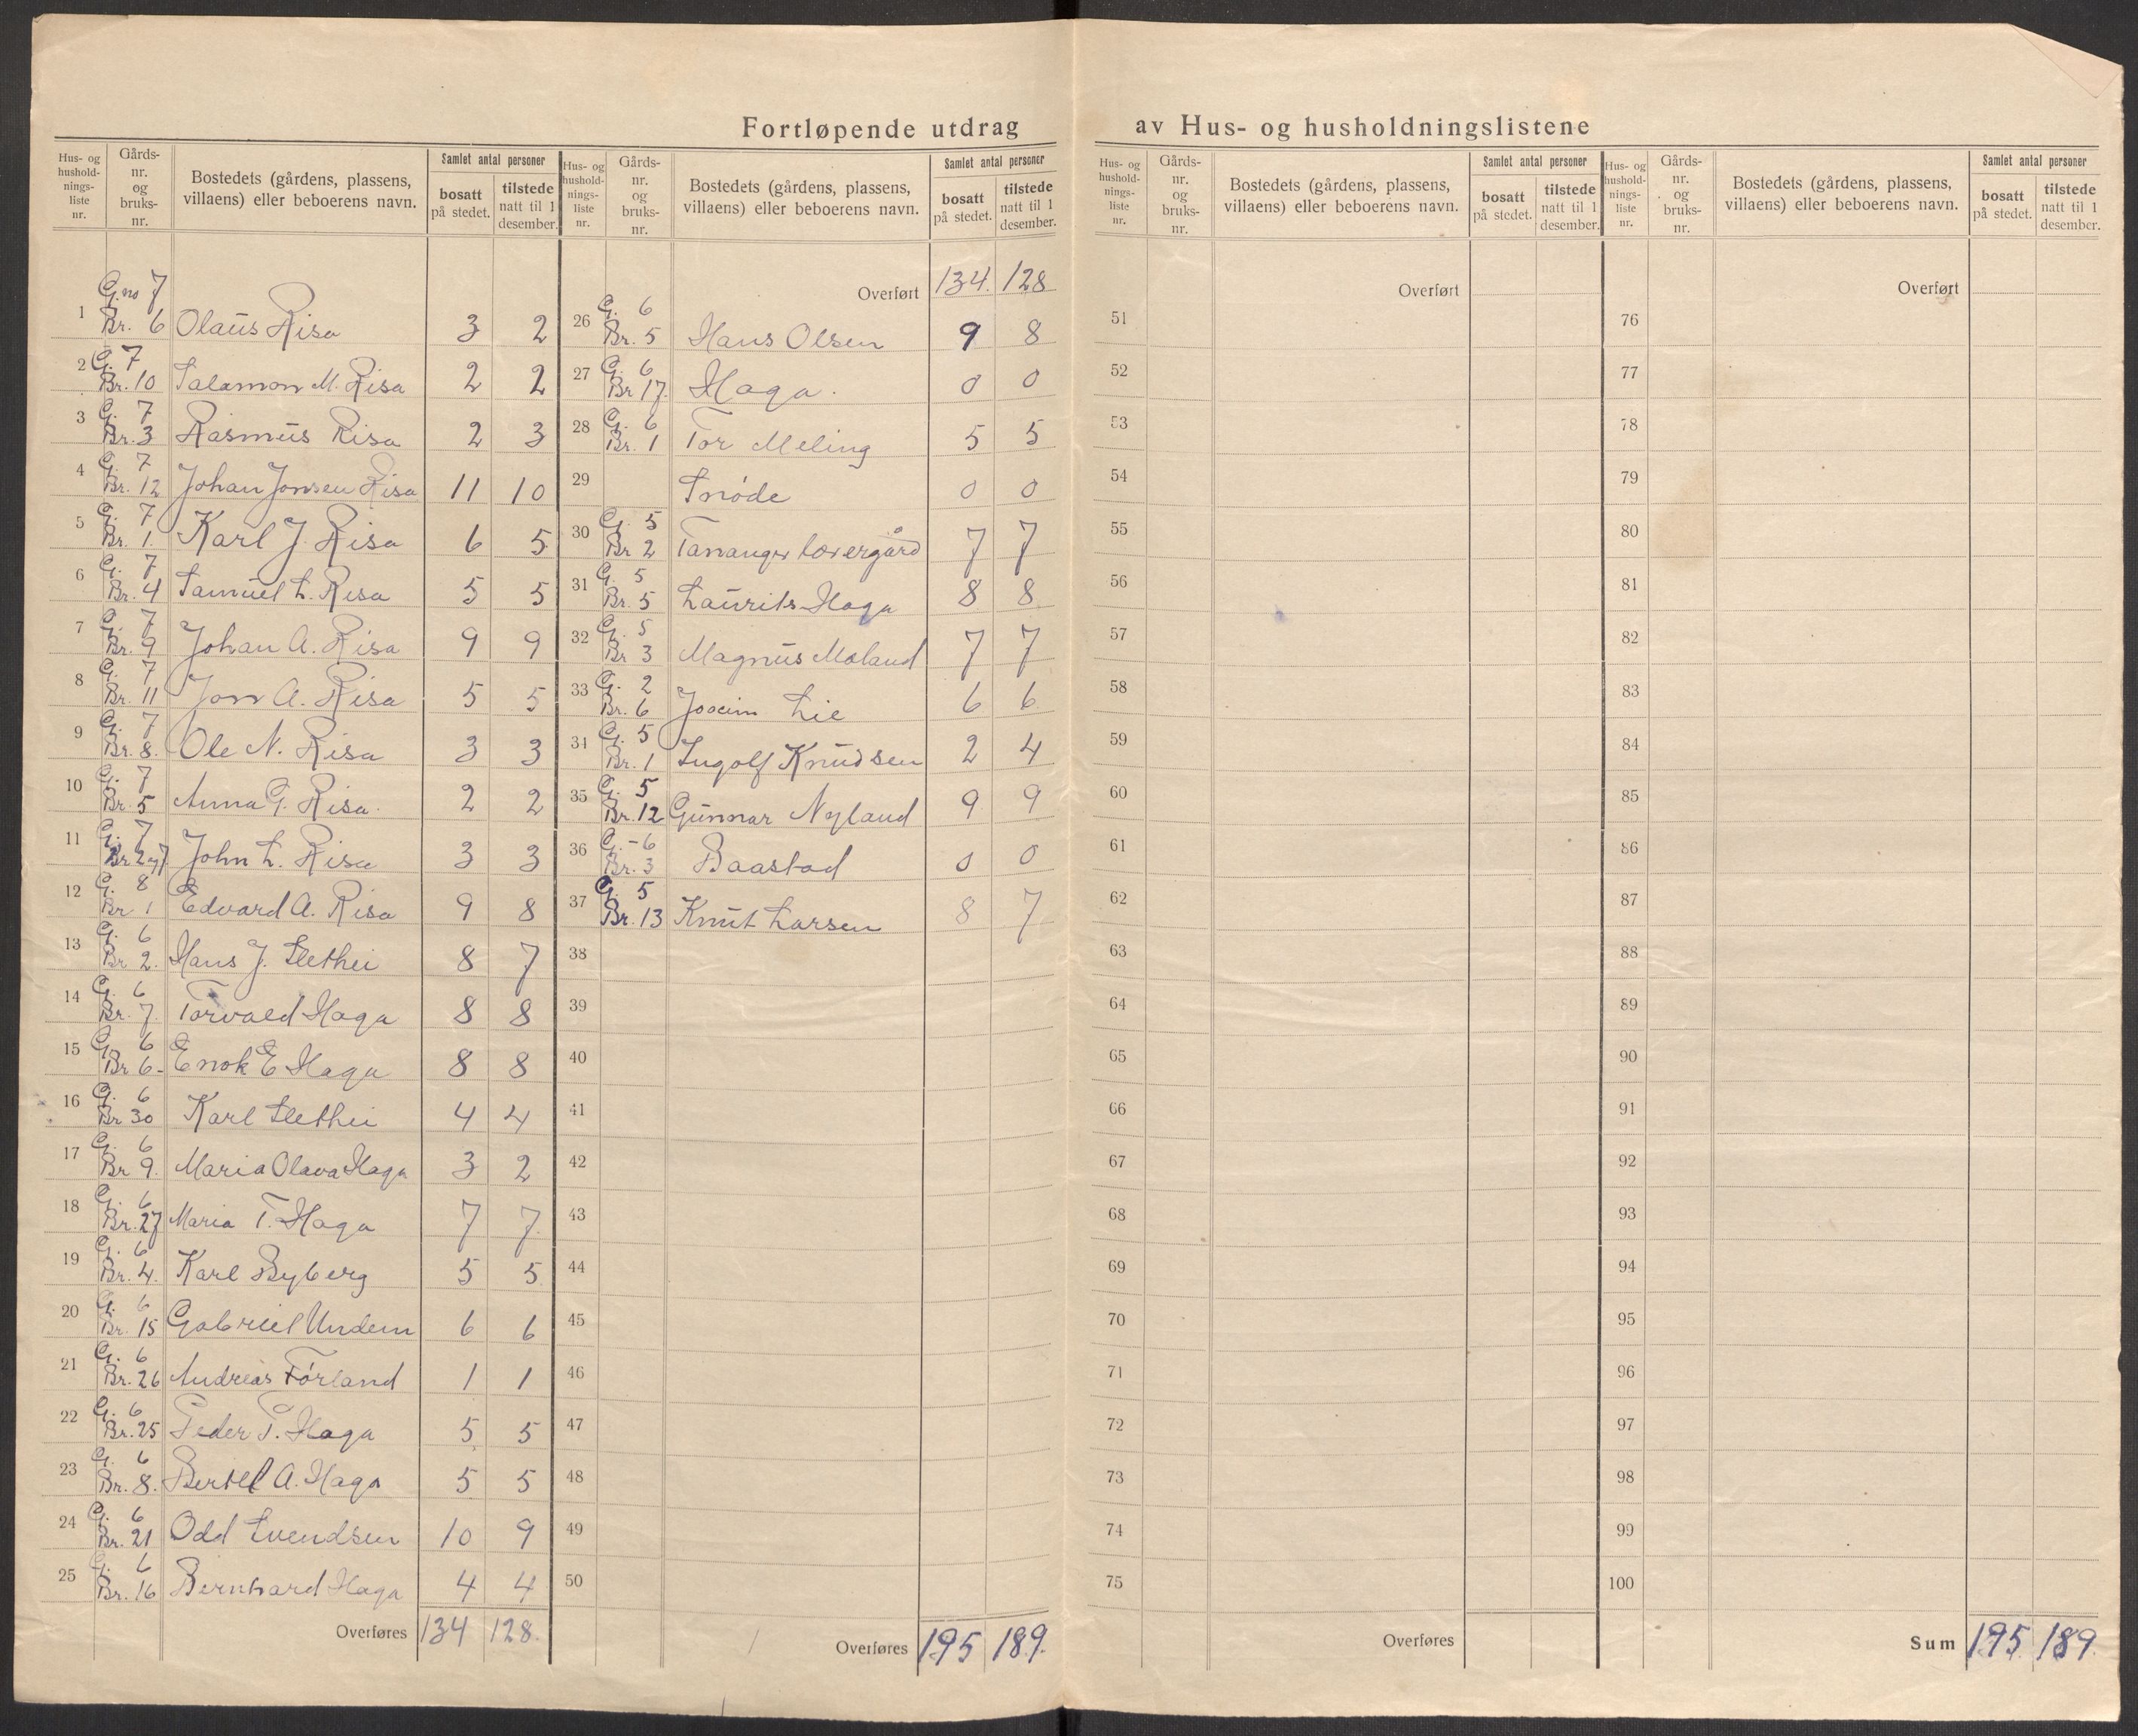 Fortløpende utdrag av Hus- og husholdningslistene
Hus- og hushold-nings-liste nr. | Gårds-nr. og bruks-nr. | Bostedets (gårdens, plassens, villaens) eller beboerens navn. | Samlet antal personer | bosatt på stedet. | tilstede natt til 1 desember.
1 G.no 7 Br. 6 Olaus Risa 3 2
2 G. 7 Br. 10 Salamon M. Risa 2 2
3 G. 7 Br. 3 Rasmus Risa 2 3
4 G. 7 Br. 12 Johan Jonsen Risa 11 10
5 G. 7 Br. 1. Karl J. Risa 6 5
6 G. 7 Br. 4 Samuel L. Risa 5 5
7 G. 7 Br. 9 Johan A. Risa 9 9
8 G. 7 Br. 11 Jon A. Risa 5 5
9 G. 7 Br. 8. Ole N. Risa 3 3
10 G. 7 Br. 5 Anna G. Risa. 2 2
11 G. 7 Br. 2 og 7 John L. Risa 3 3
12 G. 8 Br 1 Edvard A. Risa 9 8
13 G. 6 Br 2. Hans J. Slethei 8 7
14 G. 6 Br. 7. Torvald Haga 8 8
15 G. 6 Br 6- Enok E Haga 8 8
16 G. 6 Br 30 Karl Slethei 4 4
17 G. 6 Br 9. Maria Olava Haga 3 2
18 G. 6 Br. 27 Maria T. Haga 7 7
19 G. 6 Br. 4. Karl Byberg 5 5
20 G. 6 Br. 15 Gabriel Undem 6 6
21 G. 6 Br. 26 Andreas Førland 1 1
22 G. 6 Br. 25 Peder T. Haga 5 5
23 G. 6 Br. 8. Bertel A. Haga 5 5
24 G. 6 Br. 21 Odd Svendsen 10 9
25 G. 6 Br. 16 Bernhard Haga 4 4
Overføres 134 128.
Hus- og hushold-nings-liste nr. | Gårds-nr. og bruks-nr. | Bostedets (gårdens, plassens, villaens) eller beboerens navn. | Samlet antal personer | bosatt på stedet. | tilstede natt til 1 desember.
Overført 134. 128
26 G. 6 Br. 5 Hans Olsen 9 8
27 G. 6 Br 17. Haga. 0 0
28 G. 6 Br. 1 Tor Meling 5 5
29 Snøde 0 0
30 G. 5 Br 2 Tananger 7 7
31 G. 5 Br. 5 Laurits Haga 8 8
32 G. 5 Br 3 Magnus Meland 7 7
33 G. 2 Br. 6 Joacim Lie 6 6
34 G. 5 Br. 1 Ingolf Knudsen 2 4
35 G. 5 Br. 12 Gunnar Nyland 9 9
36 G. - 6 Br. 3 Baastad 0 0
37 G. 5 Br. 13 Knut Larsen 8 7
38
39
40
41
42
43
44
45
46
47
48
49
50
Overføres 195 189.
Hus- og hushold-nings-liste nr. | Gårds-nr. og bruks-nr. | Bostedets (gårdens, plassens, villaens) eller beboerens navn. | Samlet antal personer | bosatt på stedet. | tilstede natt til 1 desember.
Overført
51
52
53
54
55
56
57
58
59
60
61
62
63
64
65
66
67
68
69
70
71
72
73
74
75
Overføres
Hus- og hushold-nings-liste nr. | Gårds-nr. og bruks-nr. | Bostedets (gårdens, plassens, villaens) eller beboerens navn. | Samlet antal personer | bosatt på stedet. | tilstede natt til 1 desember.
Overført
76
77
78
79
80
81
82
83
84
85
86
87
88
89
90
91
92
93
94
95
96
97
98
99
100
Sum 195 189